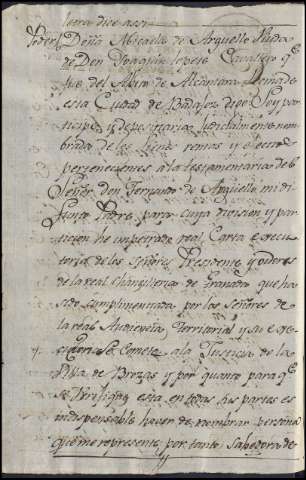 letra dice assi
Poder Doña Micaela de Arguello Viuda
de Don Joaquin Lopesis Cavallero q.
fue del Abito de Alcantara Vecina de
esta Ciudad de Badajoz digo Soy par
ticipe y depositaria judicialmente nom
brada de los bienes rentas y efectos
pertenecientes a la testamentaria de el
Señor don Fernando de Arguello mi di
funto Padre para cuya division y par
ticion he impetrado real Carta executo
toria de los Señores Presidente y oydores
de la real Chancilleria de Granada que ha
sido cumplimentada por los Señores de
la real Audiencia territorial y su exe
cucion Se Comete a la Justicia de la
Villa de Brozas y por quanto para q.e
Se Verifique esta en todas sus partes es
indispensable haver de nombrar persona
que me represente por tanto Sabedora de